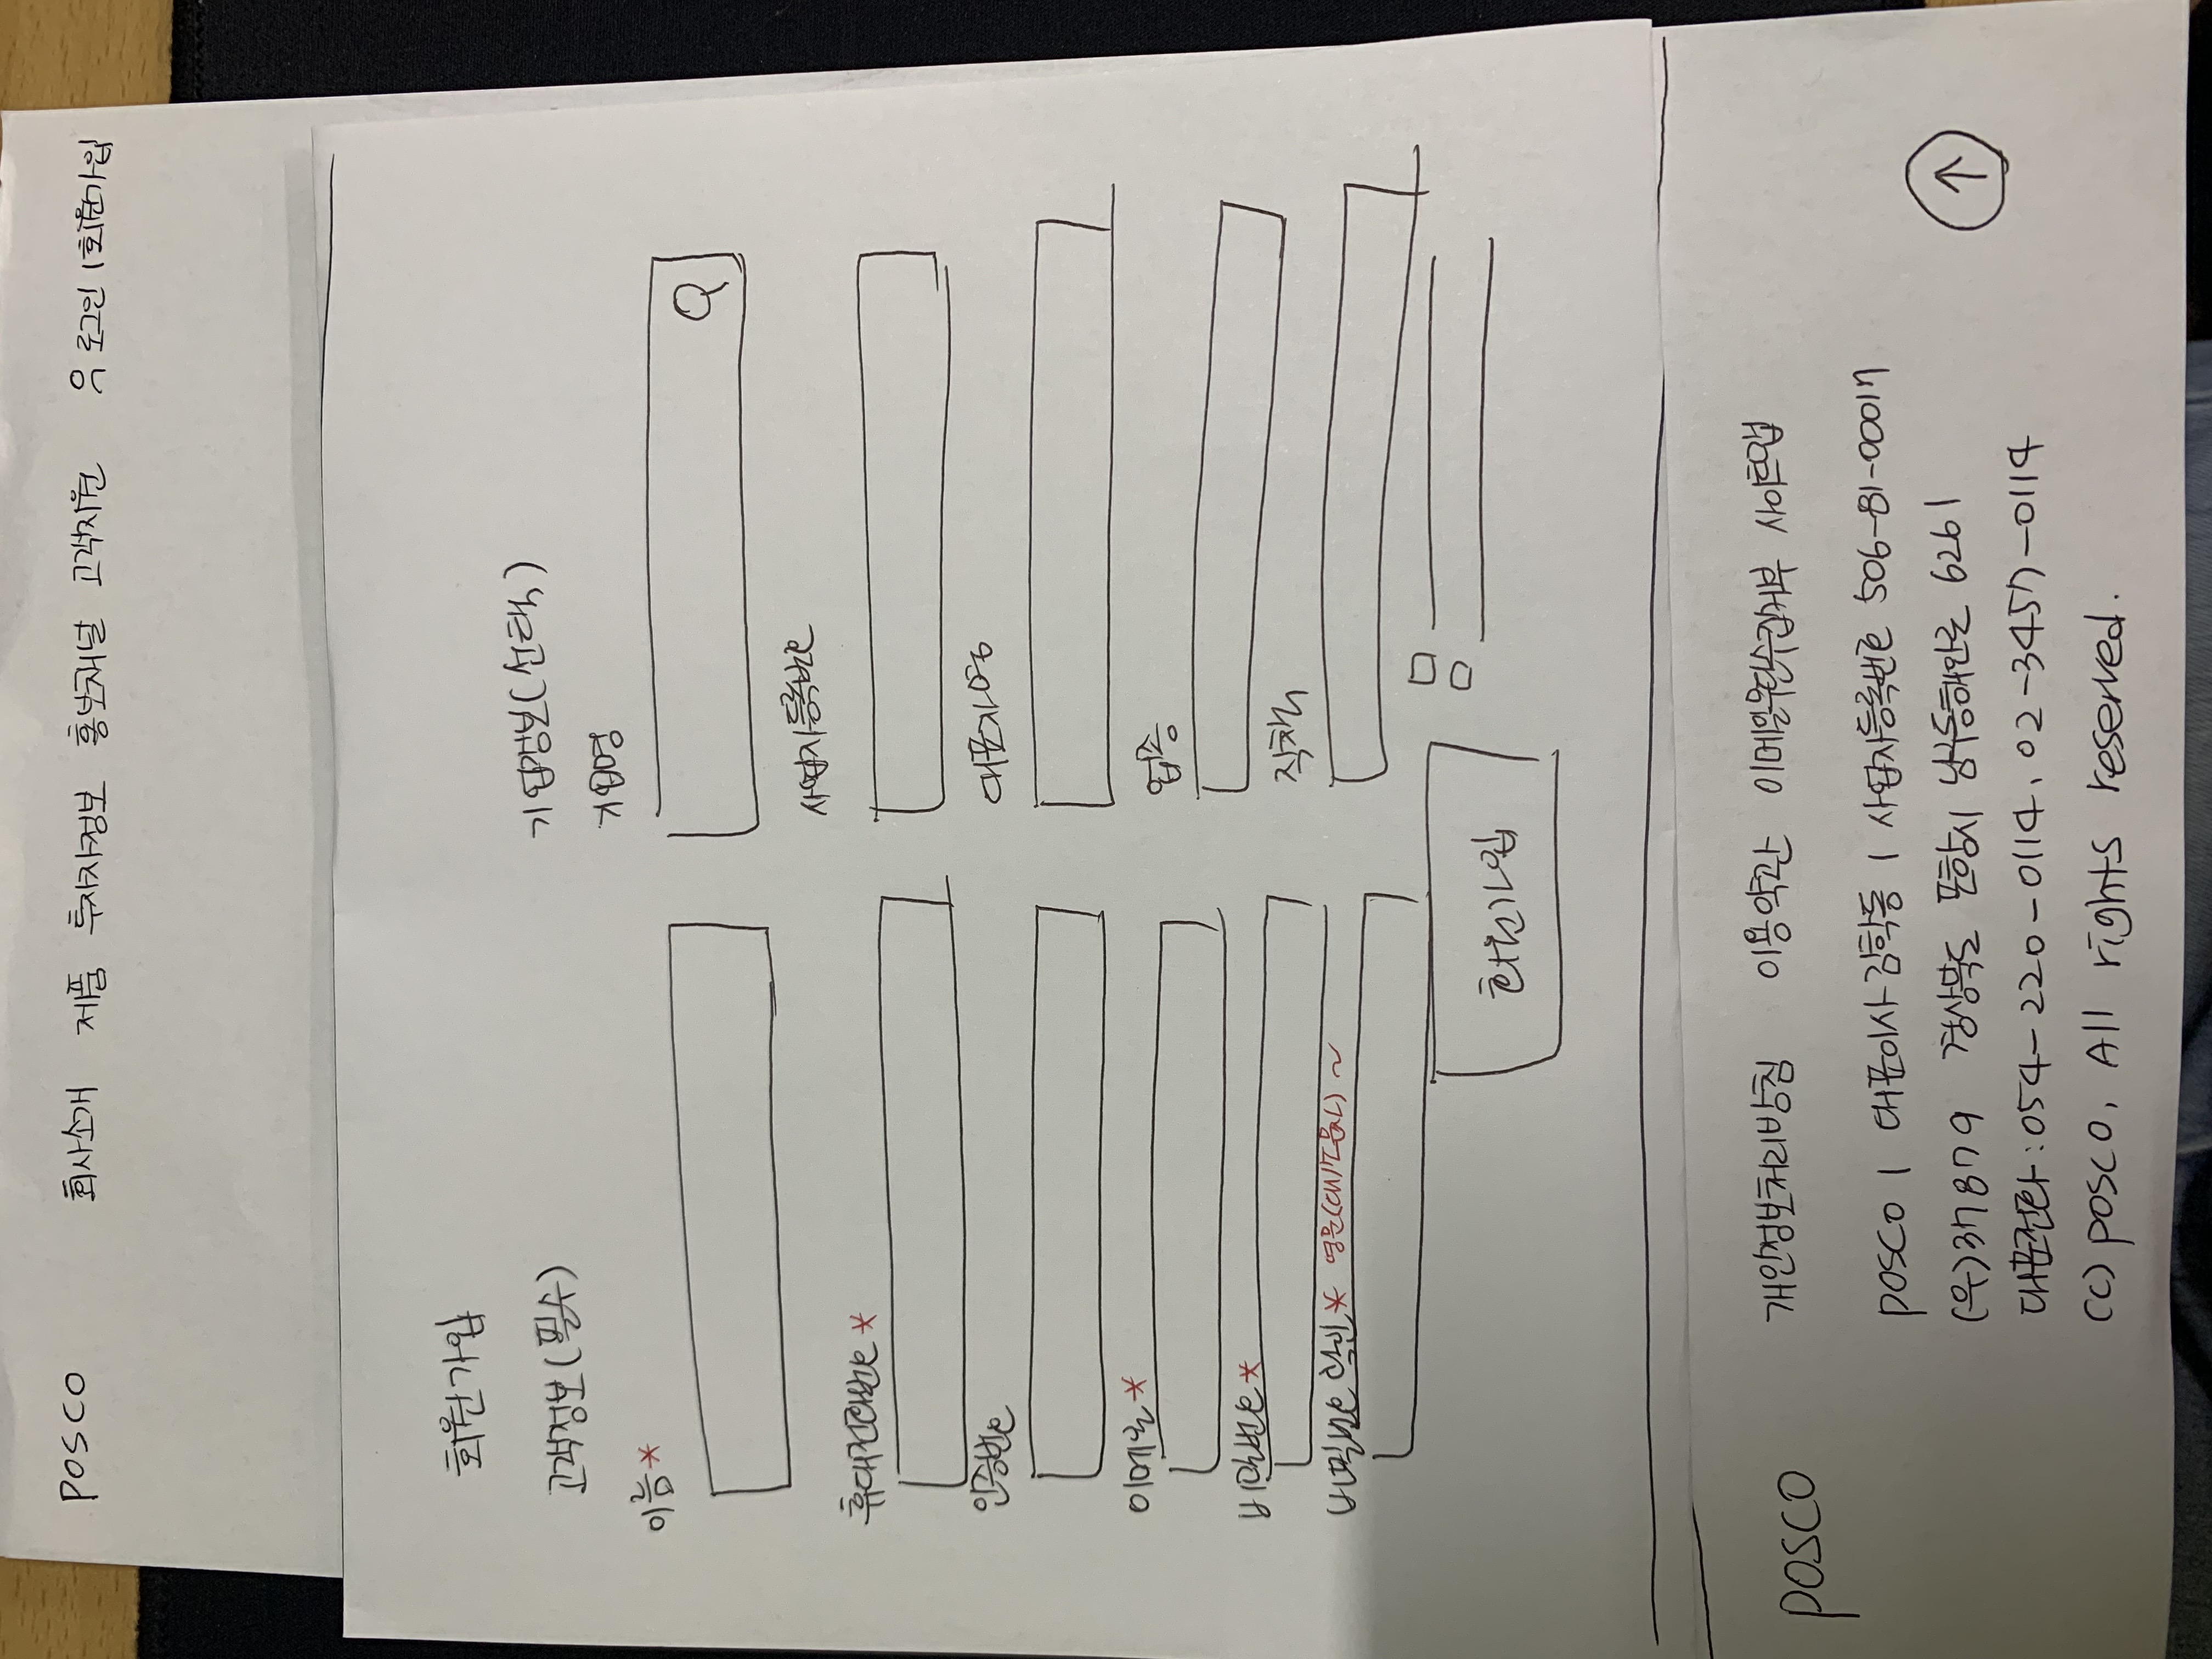 POSCO 회사소개 제품 투자자정보 홍보채널 고객지원 로그인 | 회원가입
회원가입
고객정보(필수)
이름*
휴대전화번호*
인증번호
이메일*
비밀번호*
비밀번호 확인* 영문(대/소문자) ~
기업정보(선택)
기업명
사업자등록번호
대표자명
업종
직책
회원가입
POSCO
개인정보처리방침 이용약관 이메일무단수집거부 사이트맵
POSCO | 대표이사 김학동 | 사업자등록번호 506-81-00017
(우)37879 경상북도 포항시 남구동해안로 6261
대표전화 : 054-220-0114, 02-3457-0114
(C) POSCO, All rights reserved.